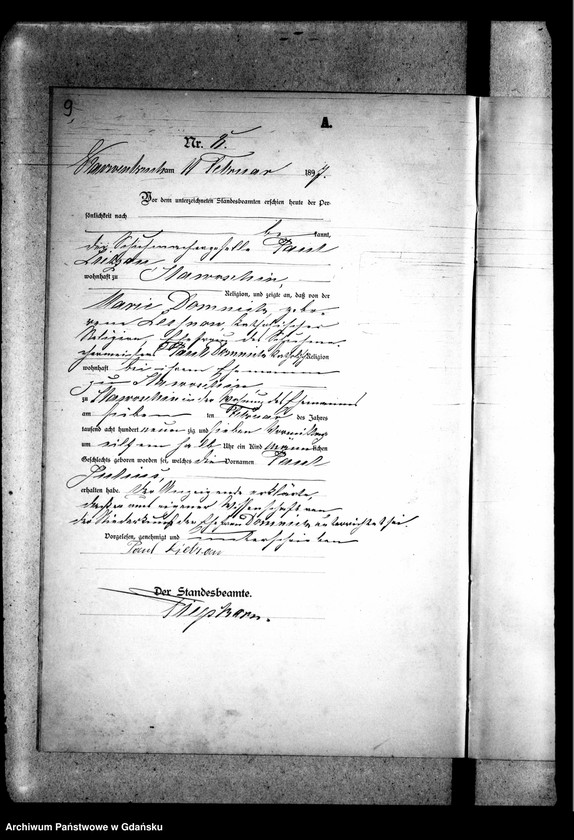 9
A.
Nr. 8.
Karwenbruch am 11 Februar 1897.
Vor dem unterzeichneten Standesbeamten erschien heute der Per-
sönlichkeit nach
be kannt,
die Schuhmachergeselle Paul
wohnhaft zu
Religion, und zeigte an, daß von der
Marie Domnick, gebo-
rene katholischer
Religion, Ehefrau des Schuhma-
chermeisters Paul Domnick katholisch Religion
wohnhaft bei ihrem Ehemanne
zu
zu in der Wohnung des Ehemannes
am sieben ten Februar des Jahres
tausend acht hundert neunzig und sieben Vormittags
um elf ein halb Uhr ein Kind männlichen
Geschlechts geboren worden sei, welches die Vornamen Paul
Julius,
erhalten habe. Der Anzeigende erklärte,
daß er aus eigener Wissenschaft von
der Niederkunft der Ehefrau Domnick unterrichtet sei
Vorgelesen, genehmigt und unterschrieben
Paul
Der Standesbeamte.
Archiwum Państwowe w Gdańsku